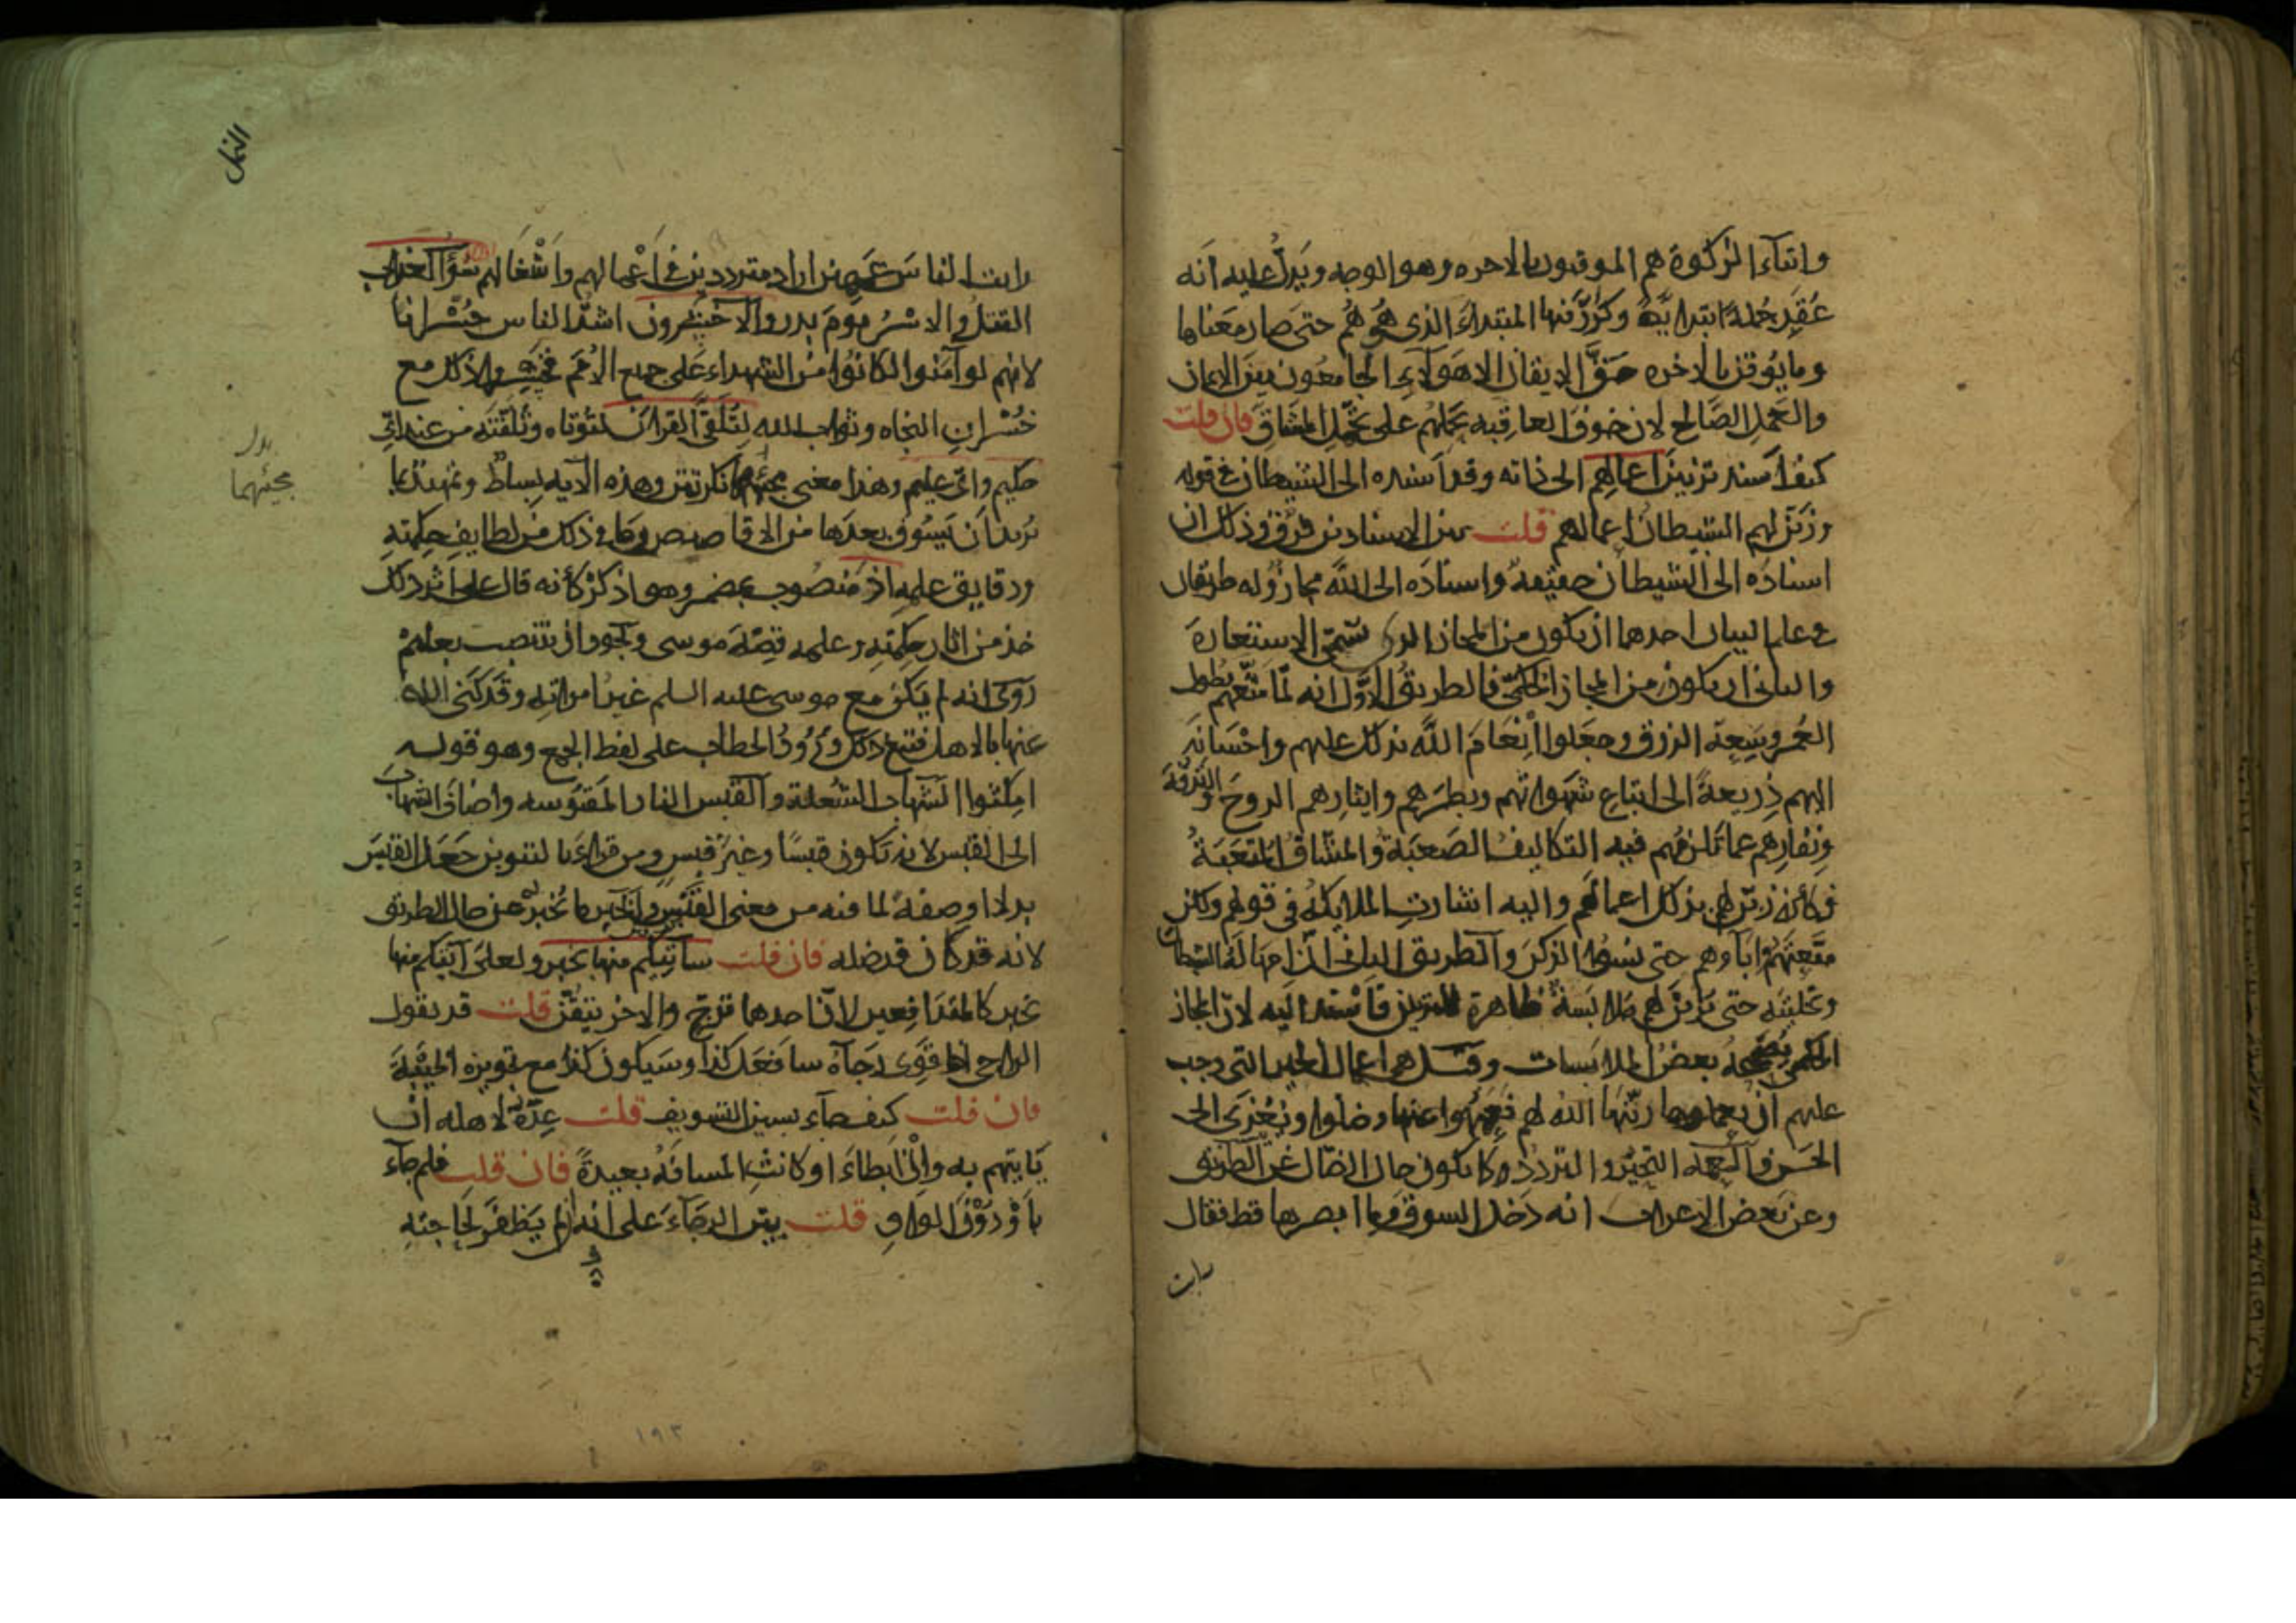 وايتاء الزكوة هم الموقنون بالاخره وهو الوجه ويدل عليه انه
عقد جملة ابتدايية وكرر فيها المبتداء الذى هو هم حتى صار معناها
وما يوقن بالاخره حق الايقان الا هولاء الجامعون بين الايمان
والعمل الصالح لان خوف العاقبه يحملهم على تحمل المشاق فان قلت
كيف اسند تزيين اعمالهم الى ذاته وقد اسنده الى الشيطان فى قوله
وزين لهم الشيطان اعمالهم قلت بين الاسنادين فرق وذلك ان
اسناده الى الشيطان حقيقة واسناده الى الله مجاز وله طريقان
فى علم البيان احدهما ان يكون من المجاز الذى يسمى الاستعارة
والثانى ان يكون من المجاز الحكمى فالطريق الاول انه لما متعهم بطول
العمر وسعة الرزق وجعلوا انعام الله بذلك عليهم واحسانه
اليهم ذريعة الى اتباع شهواتهم وبطرهم وايثارهم الروح والترفة
ونفارهم عما يلزمهم فيه التكاليف الصعبة والمشاق المتعبة
فكانه زين لهم بذلك اعمالهم واليه اشارت الملايكة فى قولهم ولكن
متعتهم واباءهم حتى نسوا الذكر والطريق الثانى ان امهاله الشيطان
وتخليته حتى يزين لهم ملابسة ظاهرة للتزيين فاسند اليه لان المجاز
الحكمى يصححه بعض الملابسات وقيل هى اعمال الخير التى وجب
عليهم ان يعملوها زينها الله لهم فعمهوا عنها وضلوا ويعزى الى
الحسن والعمه التحير والتردد كما يكون حال الضال عن الطريق
وعن بعض الاعراب انه دخل السوق وما ابصرها قط فقال
رايت
النمل
رايت الناس عمهين اراد مترددين فى اعمالهم واشغالهم سوء العذاب
القتل والاسر يوم بدر والاخسرون اشد الناس خسرانا
لانهم لو آمنوا لكانوا من الشهداء على جميع الامم فخسروا ذلك مع
خسران النجاه وثواب الله لتلقى القران لتؤتاه وتلقنه من عند اى
حكيم واى عليم وهذا معنى مجيئهما نكرتين وهذه الايه بساط وتمهيد لما
يريد ان يسوق بعدها من الاقاصيص وما فى ذلك من لطايف حكمته
ودقايق علمه اذ منصوب بمضمر وهو اذكر كأنه قال على اثر ذلك
خذ من اثار حكمته وعلمه قصة موسى ويجوز ان ينتصب بعليم
روى انه لم يكن مع موسى عليه السلم غير امراته وقد كنى الله
عنها بالاهل فتبع ذلك ورود الخطاب على لفظ الجمع وهو قوله
امكثوا الشهاب الشعلة والقبس النار المقبوسه واضاف الشهاب
الى القبس لانه يكون قبسا وغير قبس ومن قراء بالتنوين جعل القبس
بدلا او صفة لما فيه من معنى القبس والخبر ما يخبر به عن حال الطريق
لانه قد كان قد ضله فان قلت سآتيكم منها بخبر ولعلى آتيكم منها
بخبر كالمتدافعين لان احدهما ترج والاخر تيقن قلت قد يقول
الراجى اذا قوى رجاؤه سافعل كذا وسيكون كذا مع تجويزه الخيبة
فان قلت كيف جاء بسين التسويف قلت عدة لاهله انه
ياتيهم به وان ابطاء او كانت المسافة بعيدة فان قلت فلم جاء
باو دون الواو قلت بنى الرجاء على انه ان لم يظفر بحاجتيه
بدل
مجيئهما
١٩٣